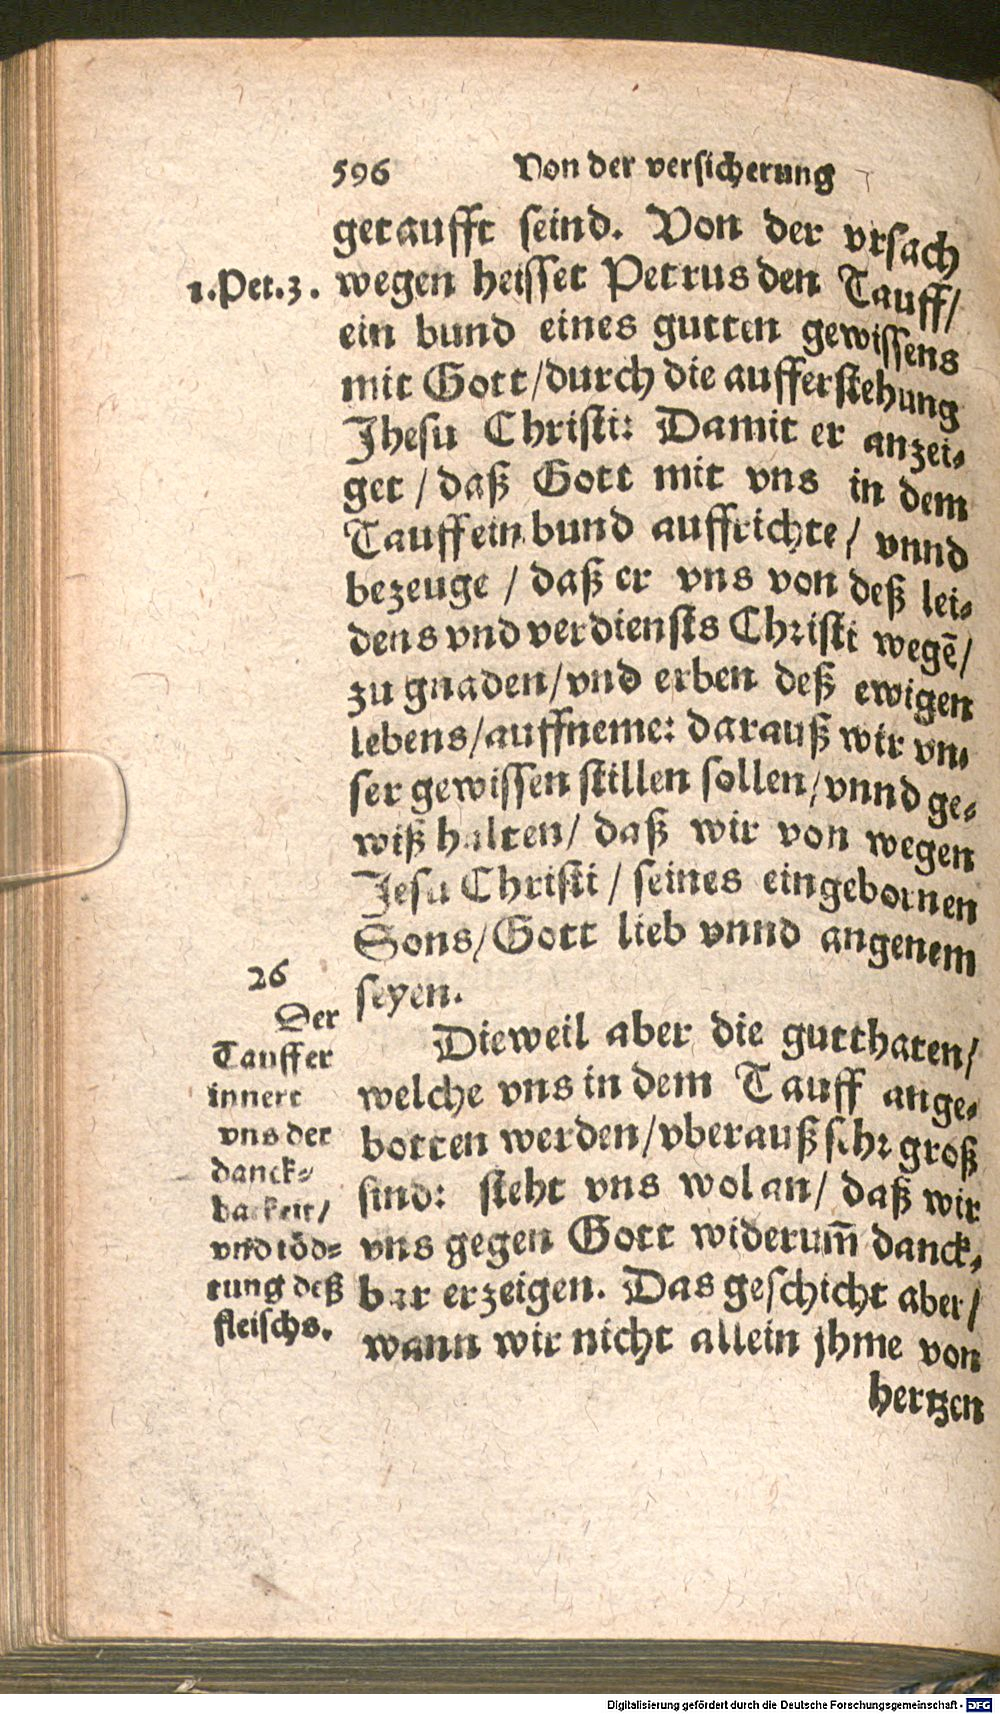 596 Von der versicherung
getaufft seind. Von der vrsach
1.Pet.3. wegen heisset Petrus den Tauff/
ein bund eines gutten gewissens
mit Gott/durch die aufferstehung
Jhesu Christi: Damit er anzei-
get/daß Gott mit vns in dem
Tauff ein bund auffrichte/vnnd
bezeuge/daß er vns von deß lei-
dens vnd verdiensts Christi wegē/
zu gnaden/vnd erben deß ewigen
lebens/auffneme: darauß wir vn-
ser gewissen stillen sollen/vnnd ge-
wiß halten/daß wir von wegen
Jesu Christi/seines eingebornen
Sons/Gott lieb vnnd angenem
seyen.
26
Der
Tauff er
innert
vns der
danck-
barkeit/
vnd töd-
tung deß
fleischs.
Dieweil aber die gutthaten/
welche vns in dem Tauff ange-
botten werden/vberauß sehr groß
sind: steht vns wol an/daß wir
vns gegen Gott widerum̄ danck-
bar erzeigen. Das geschicht aber/
wann wir nicht allein jhme von
hertzen
Digitalisierung gefördert durch die Deutsche Forschungsgemeinschaft - DFG